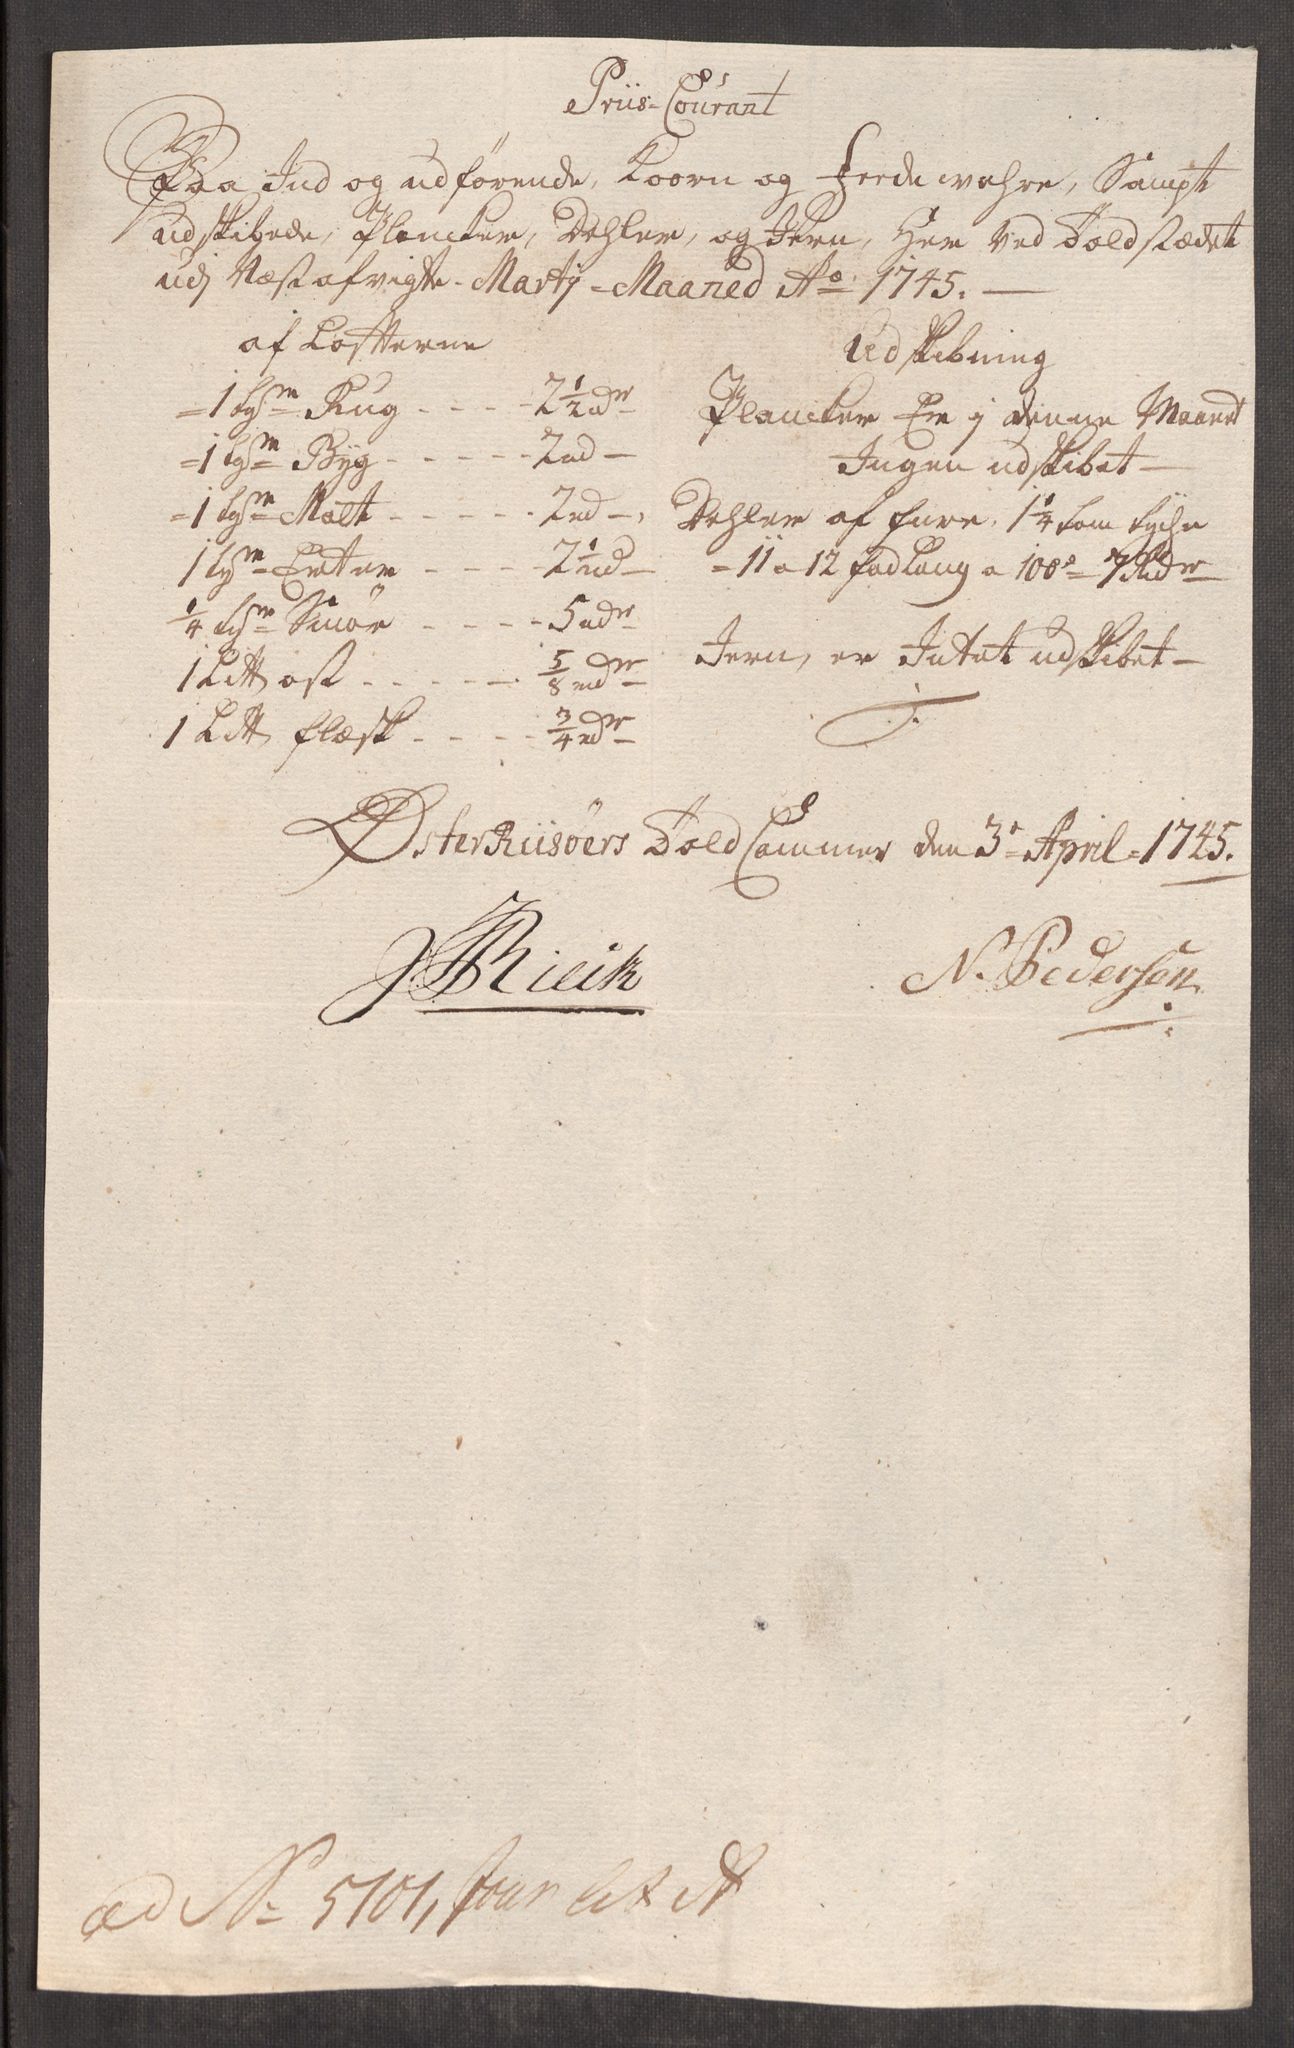 Priis-Courant
Paa Ind og udförende, Koorn og feede wahre, Sampt
udskibede, Plancker, Dehler, og Jern, Her ved Toldstædet
udj Næstafvigte - Martij - Maaned Ao 1745. —
af Lofterne
= 1 tøn Rug - - - - 2 1/2 rdr
= 1 tøn Byg - - - - - 2 rd -
= 1 tøn Malt - - - - - 2 rd -
1 tøn Erter - - - - 2 1/2 rd -
1/4 tøn Smør - - - - 5 rdr
1 L℔ ost - - - - - 5/8 rdr
1 L℔ flæsk - - - - 3/4 rdr
Udskibning
Plancker Er j denne Maaned
Ingen udskibet —
Dehler af fure, 1 1/4 tom tyche
= 11 a 12 fod Lang a 100d 7 Rdr
Jern, er Intet udskibet —
ØsterRiisöers Told Cammer den 3t April = 1745.
N. Pedersen
ad No 5101, Jour lit A